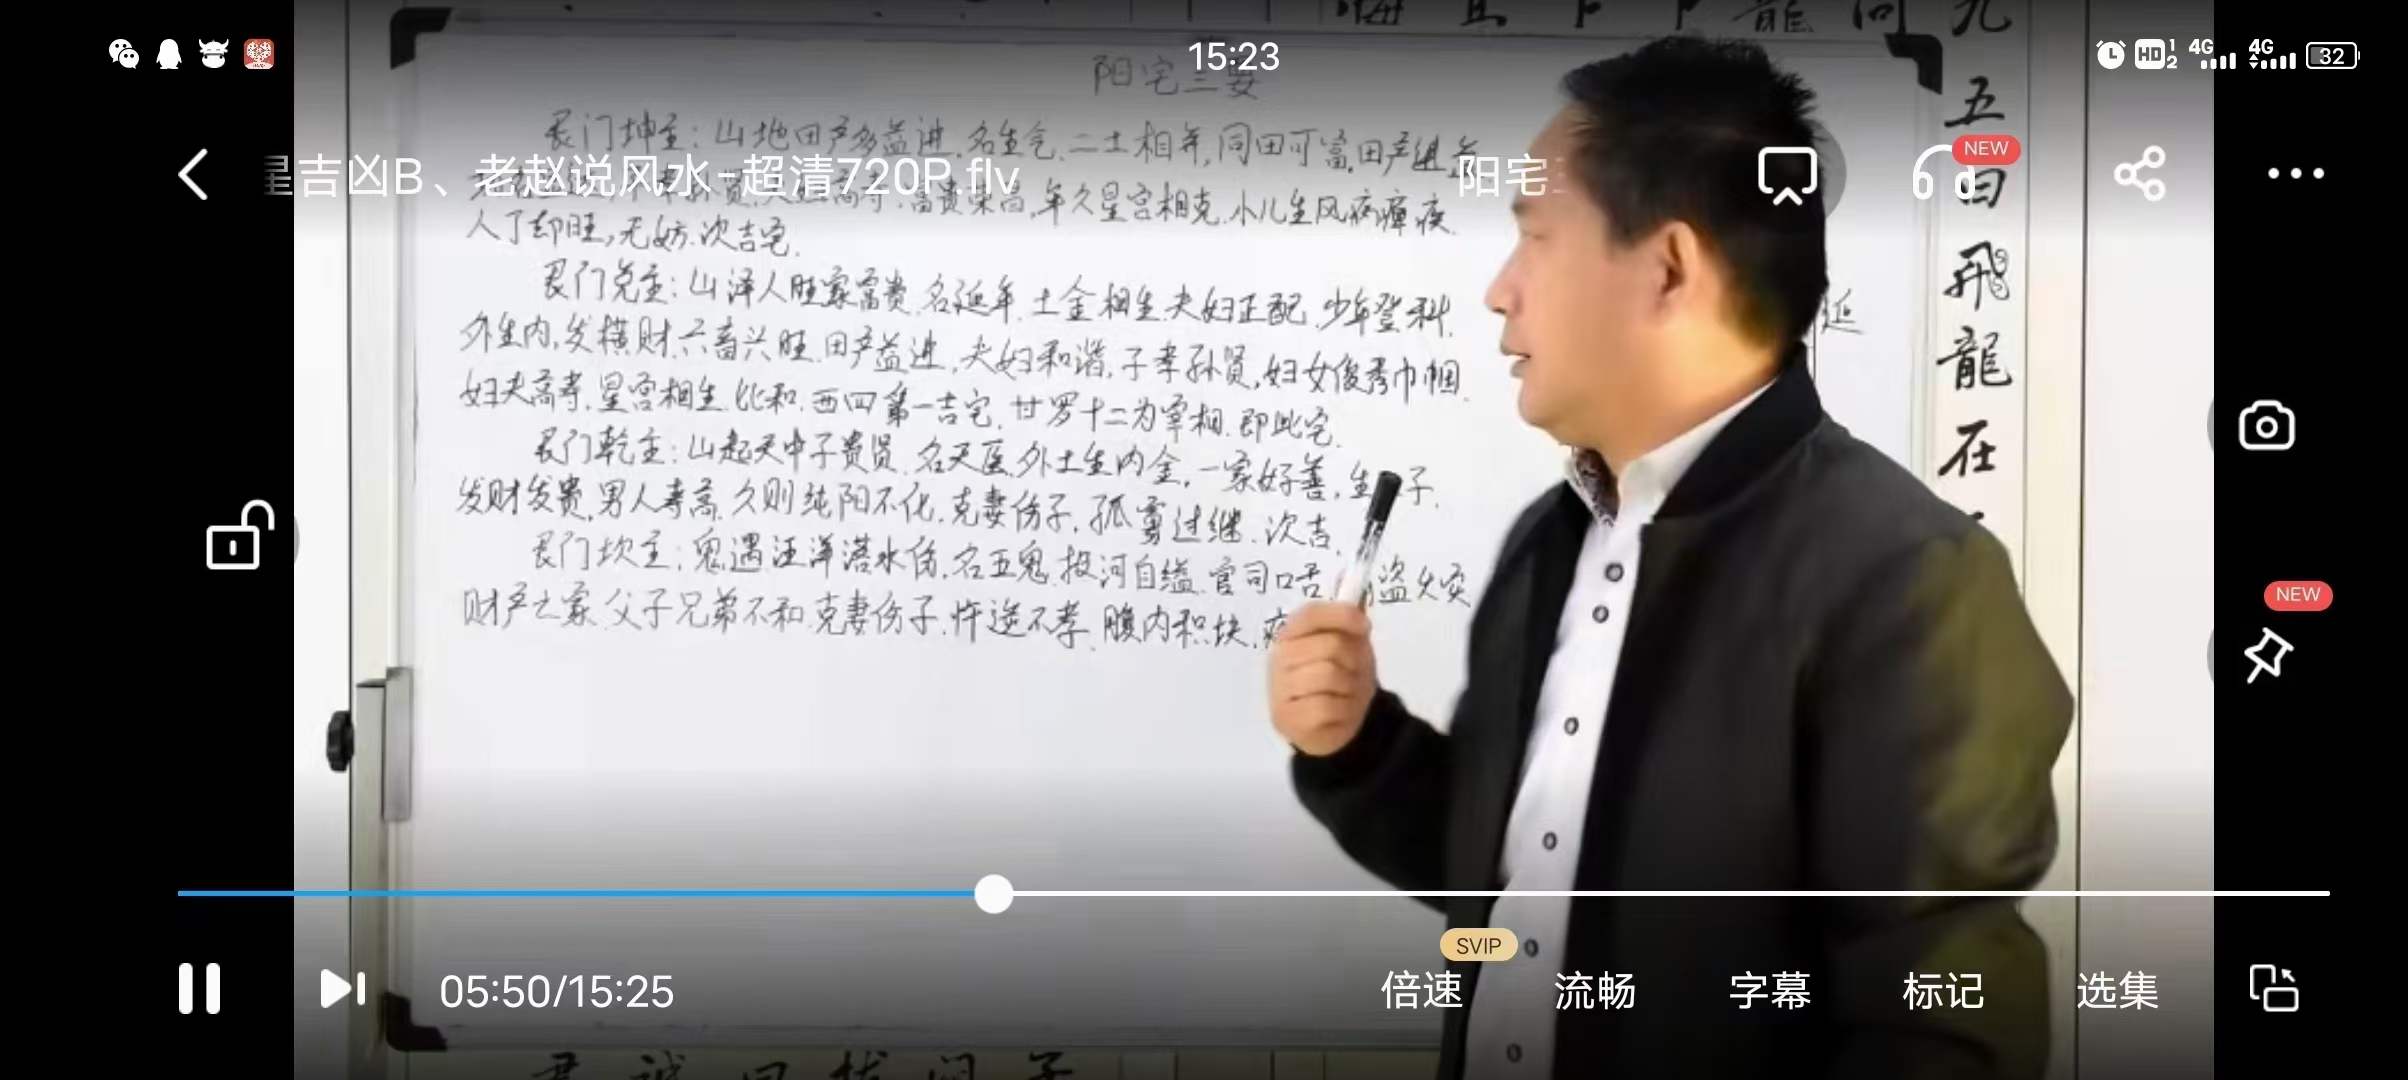 15:23
HD 1 2 4G 4G 32
阳宅三要
五
曰
飛
龍
在
星吉凶B、老赵说风水-超清720P.flv
阳宅
NEW
艮门坤主:山地田产多益进.名生气.二土相并,同田可富.田产进益
富贵荣昌,年久星宫相克.小儿生风疾瘴疾.
人丁却旺,无妨.次吉宅.
艮门兑主:山泽人旺家富贵.名延年.土金相生.夫妇正配.少年登科.
外生内,发横财.六畜兴旺.田产益进,夫妇和谐,子孝孙贤,妇女俊秀巾帼.
妇夫高寿.星宫相生.比和.西四第一吉宅.甘罗十二为宰相.即此宅.
艮门乾主:山起天中子贵贤.名天医.外土生内金,一家好善,生 子.
发财发贵.男人寿高.久则纯阳不化.克妻伤子.孤寡过继.次吉.
艮门坎主:鬼遇汪洋落水伤.名五鬼.投河自缢.官司口舌. 盗火灾
财产亡家.父子兄弟不和.克妻伤子.忤逆不孝.腹内积块.
延
NEW
05:50/15:25
SVIP
倍速
流畅
字幕
标记
选集